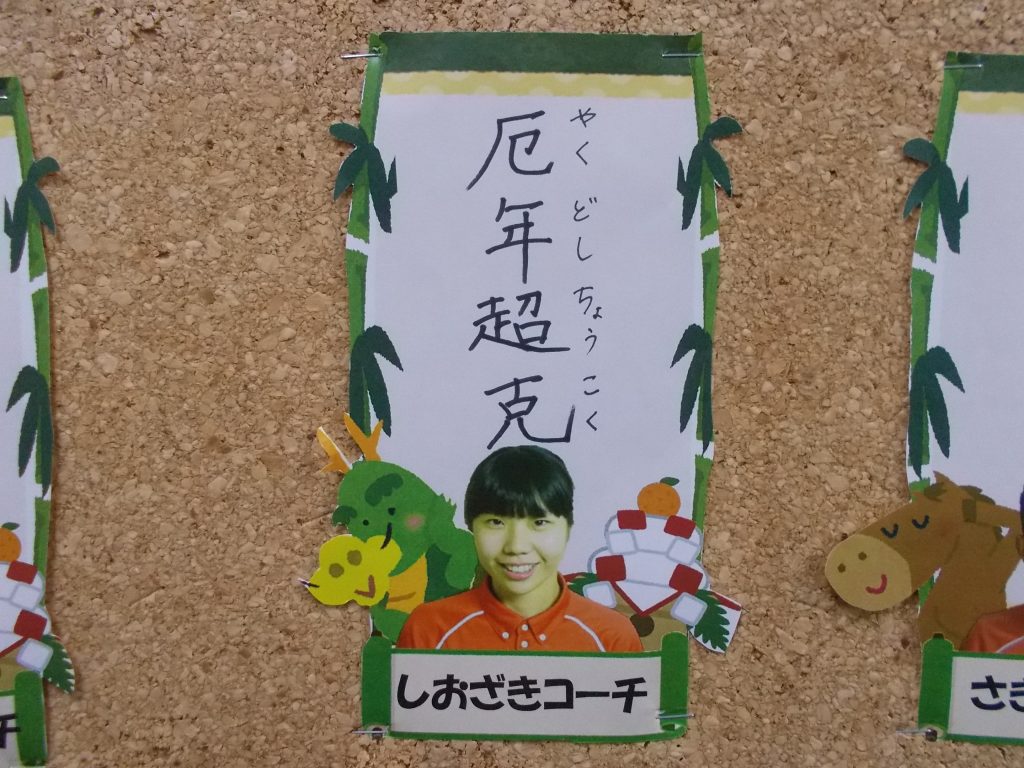 厄年超克
やくどしちょうこく
しおざきコーチ
チ
さき